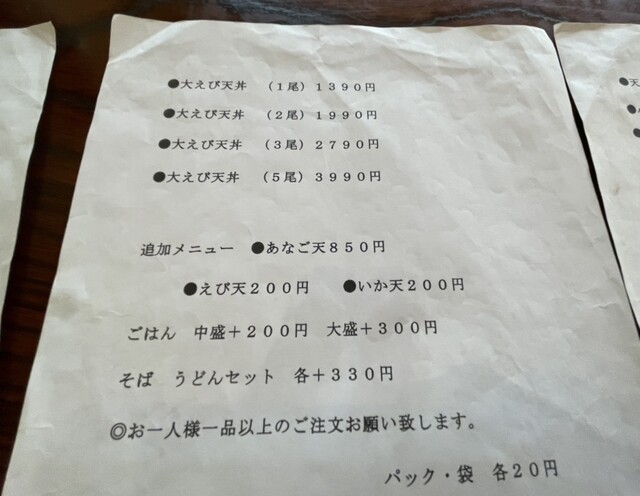 ●大えび天丼　（１尾）１３９０円
●大えび天丼　（２尾）１９９０円
●大えび天丼　（３尾）２７９０円
●大えび天丼　（５尾）３９９０円
追加メニュー　●あなご天８５０円
●えび天２００円　●いか天２００円
ごはん　中盛＋２００円　大盛＋３００円
そば　うどんセット　各＋３３０円
◎お一人様一品以上のご注文お願い致します。
パック・袋　各２０円
●天